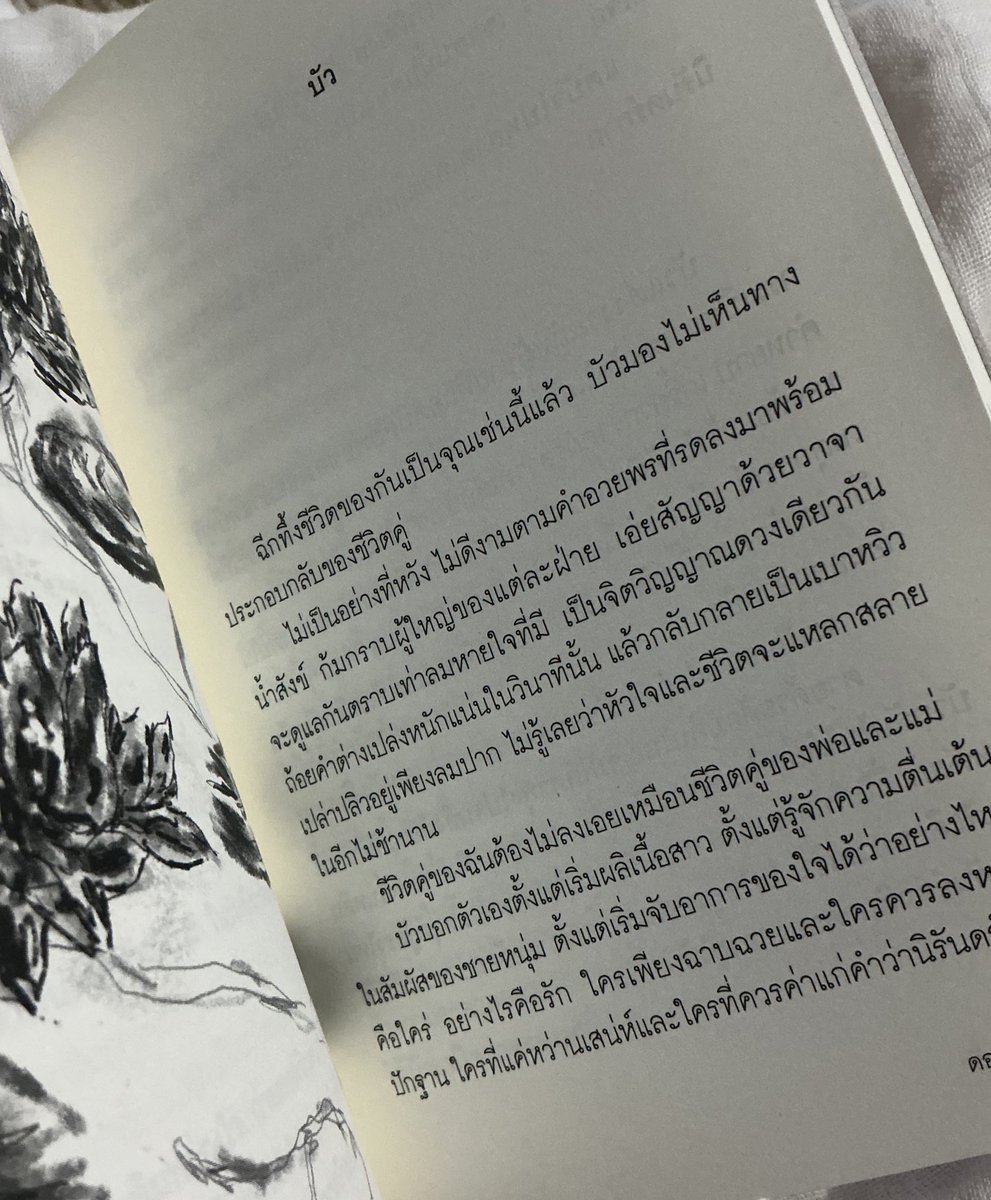 บัว
ฉีกทึ้งชีวิตของกันเป็นจุณเช่นนี้แล้ว บัวมองไม่เห็นทาง
ประกอบกลับของชีวิตคู่
ไม่เป็นอย่างที่หวัง ไม่ดีงามตามคำอวยพรที่รดลงมาพร้อม
น้ำสังข์ ก้มกราบผู้ใหญ่ของแต่ละฝ่าย เอ่ยสัญญาด้วยวาจา
จะดูแลกันตราบเท่าลมหายใจที่มี เป็นจิตวิญญาณดวงเดียวกัน
ถ้อยคำต่างเปล่งหนักแน่นในวินาทีนั้น แล้วกลับกลายเป็นเบาหวิว
เปล่าปลิวอยู่เพียงลมปาก ไม่รู้เลยว่าหัวใจและชีวิตจะแหลกสลาย
ในอีกไม่ช้านาน
ชีวิตคู่ของฉันต้องไม่ลงเอยเหมือนชีวิตคู่ของพ่อและแม่
บัวบอกตัวเองตั้งแต่เริ่มผลิเนื้อสาว ตั้งแต่รู้จักความตื่นเต้น
ในสัมผัสของชายหนุ่ม ตั้งแต่เริ่มจับอาการของใจได้ว่าอย่างไห
คือใคร่ อย่างไรคือรัก ใครเพียงฉาบฉวยและใครควรลงห
ปักฐาน ใครที่แค่หว่านเสน่ห์และใครที่ควรค่าแก่คำว่านิรันดร์